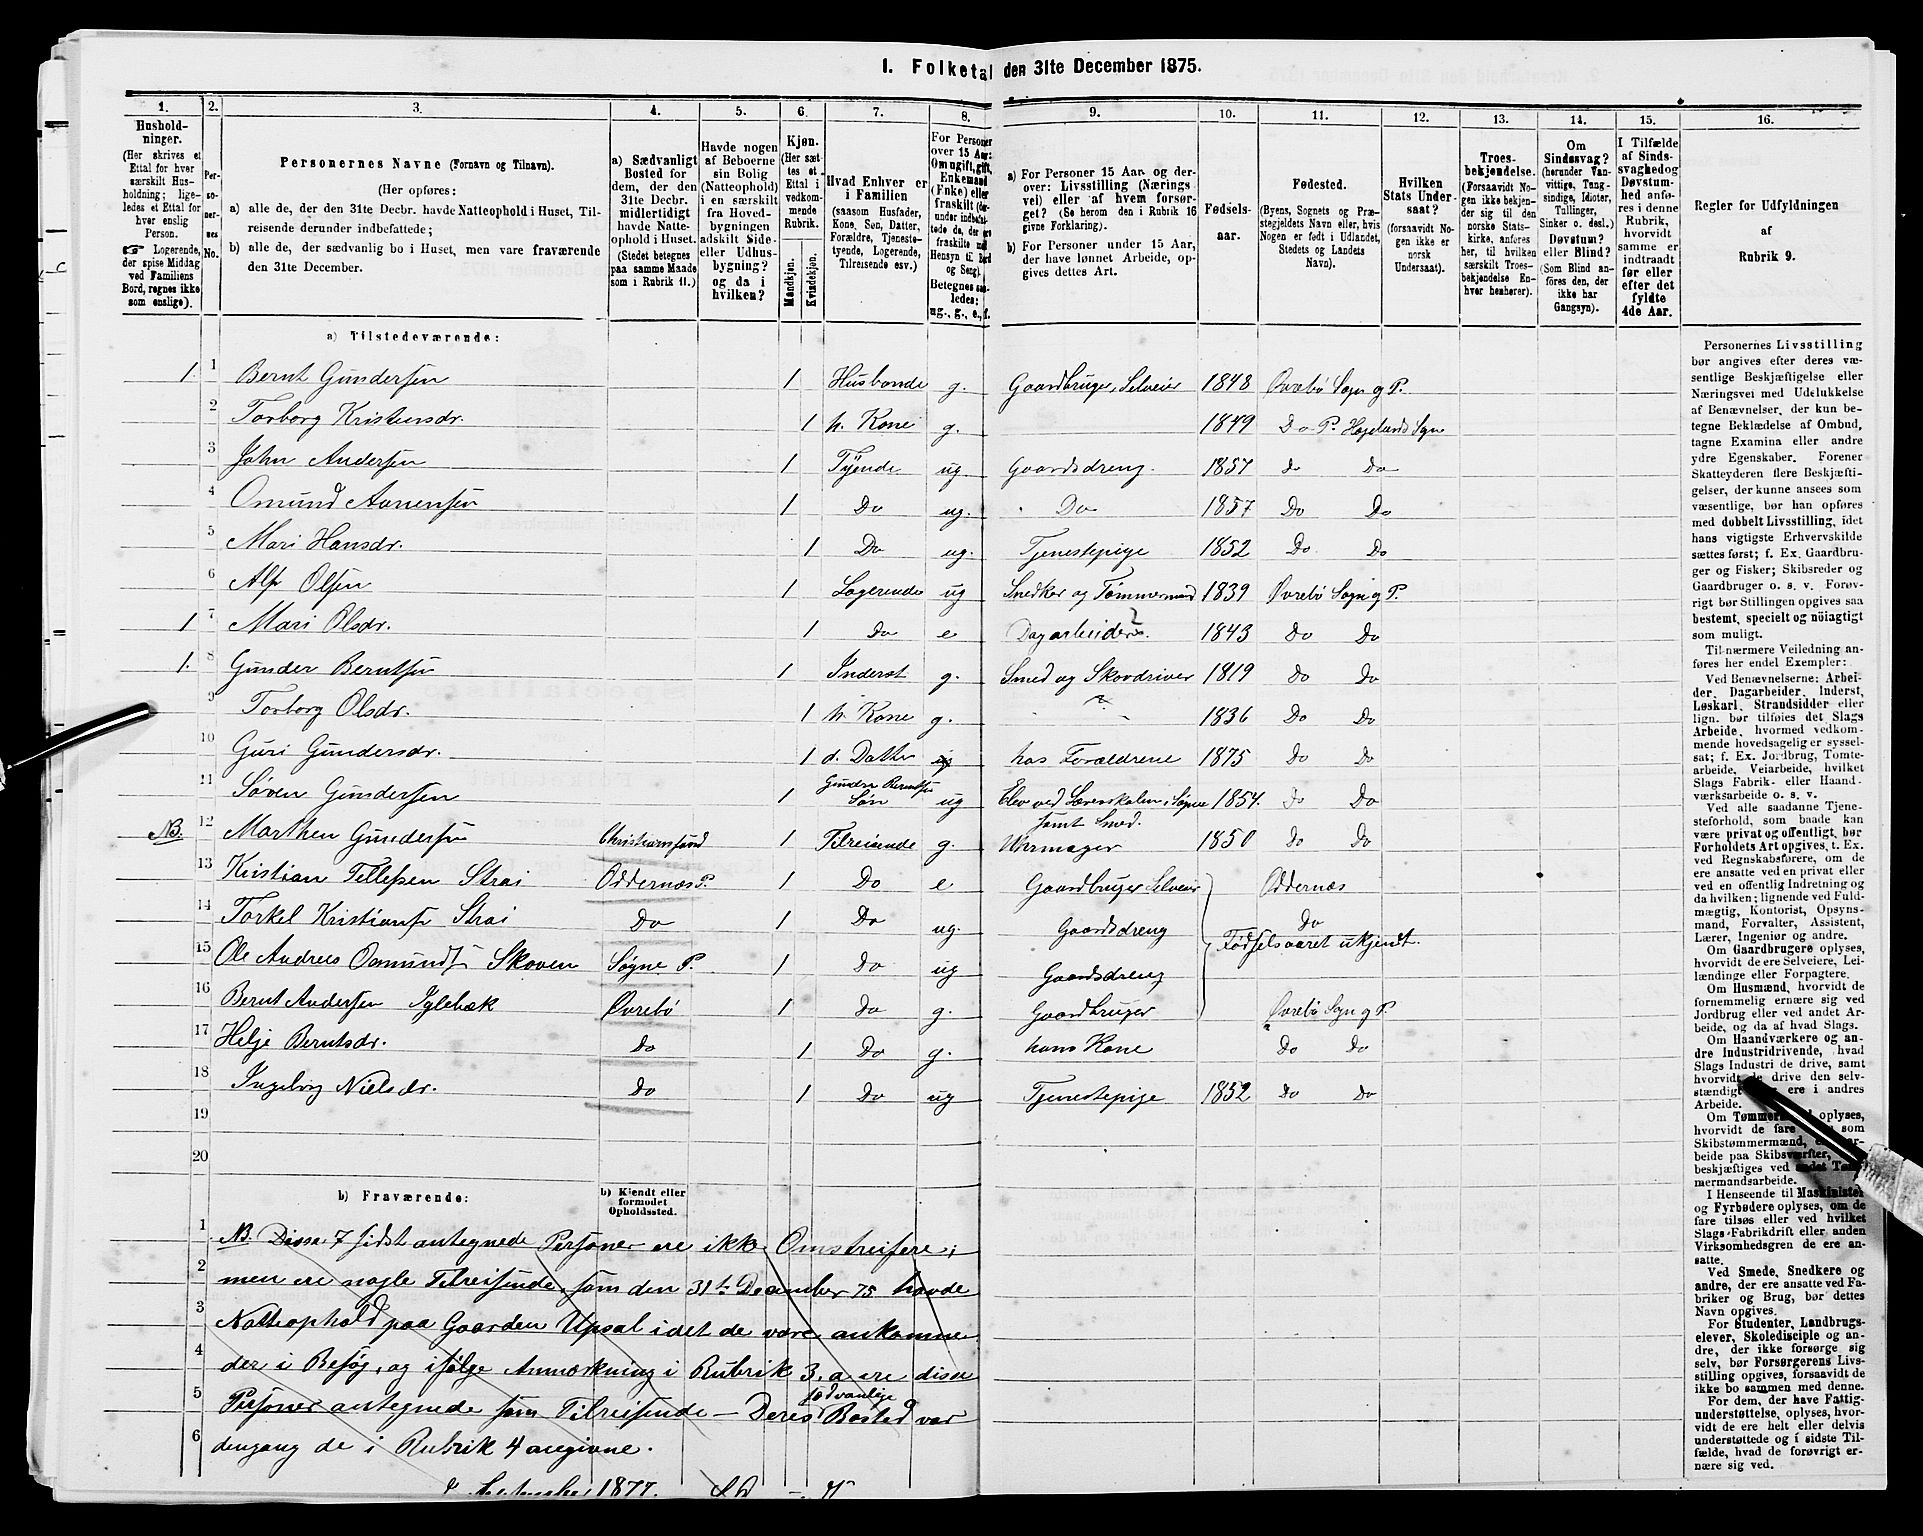 1. Folketal den 31te December 1875.
1. 2. 3. 4. 5. 6. 7. 8. 9. 10. 11. 12. 13. 14. 15. 16.
Hushold-
ninger.
(Her skrives et
Ettal for hver
særskilt Hus-
holdning; lige-
ledes et Ettal for
hver enslig
Person.
☞ Logerende,
der spise Middag
ved Familiens
Bord, regnes ikke
som enslige).
Per-
so-
ner-
nes
No.
Personernes Navne (Fornavn og Tilnavn).
(Her opføres:
a) alle de, der den 31te Decbr. havde Natteophold i Huset, Til-
reisende derunder indbefattede;
b) alle de, der sædvanlig bo i Huset, men vare fraværende
den 31te December.
a) Sædvanligt
Bosted for
dem, der den
31te Decbr.
midlertidigt
havde Natte-
ophold i Huset.
(Stedet betegnes
paa samme Maade
som i Rubrik 11.)
Havde nogen
af Beboerne
sin Bolig
(Natteophold)
i en særskilt
fra Hoved-
bygningen
adskilt Side-
eller Udhus-
bygning?
og da i
hvilken?
Kjøn.
(Her sæt-
tes et
Ettal i
vedkom-
mende
Rubrik.
Mandkjøn.
Kvindekjøn.
Hvad Enhver er
i Familien
(saasom Husfader,
Kone, Søn, Datter,
Forældre, Tjeneste-
tyende, Logerende,
Tilreisende osv.)
For Personer
over 15 Aar:
Om ugift, gift,
Enkemand
(Enke) eller
fraskilt
Betegnes saa-
ledes:
ug., g., e., f.
a) For Personer 15 Aar og der-
over: Livsstilling (Nærings-
vei) eller af hvem forsør-
get? (Se herom den i Rubrik 16
givne Forklaring).
b) For Personer under 15 Aar,
der have lønnet Arbeide, op-
gives dettes Art.
Fødsels-
aar.
Fødested.
(Byens, Sognets og Præ-
stegjeldets Navn eller, hvis
Nogen er født i Udlandet,
Stedets og Landets
Navn).
Hvilken
Stats Under-
saat?
(forsaavidt No-
gen ikke er
norsk
Undersaat).
Troes-
bekjendelse.
(Forsaavidt No-
gen ikke bekjen-
der sig til den
norske Stats-
kirke, anføres
her, til hvilken
særskilt Troes-
bekjendelse En-
hver henhører).
Om
Sindssvag?
(herunder Van-
vittige, Tung-
sindige, Idioter,
Tullinger,
Sinker o. desl.)
Døvstum?
eller Blind?
(Som Blind an-
føres den, der
ikke har
Gangsyn).
I Tilfælde
af Sinds-
svaghed og
Døvstum-
hed anfø-
res i denne
Rubrik,
hvorvidt
samme er
indtraadt
før eller
efter det
fyldte
4de Aar.
Regler for Udfyldningen
af
Rubrik 9.
a) Tilstedeværende:
1. 1 Bernt Gundersen 1 Husbonde g. Gaardbruger, Selveier 1848 Øvrebø Sogn og P.
2 Torborg Kristensdr. 1 h. Kone g. 1849 Do P. Hægelands Sogn
3 John Andersen 1 Tyende ug. Gaardsdreng. 1857 do Do
4 Omund Aanensen 1 Do ug. Do 1857 Do Do
5 Mari Hansdr. 1 Do ug. Tjenestepige 1852 Do Do
6 Alf Olsen 1 Logerende ug Snedker og Tømmermand 1839 Øvrebø Sogn og P.
1 7 Mari Olsdr. 1 Do e Dagarbeider 1843 Do Do
1. 8 Gunder Berntsen 1 Inderst g. Smed og Skovdriver 1819 Do Do
9 Torborg Olsdr. 1 h. Kone g. 1836 Do Do
10 Guri Gundersdr. 1 d. Datter ug hos Forældrene 1875 Do Do
11 Søren Gundersen 1 Gunder Berntsen Søn ug Elev ved Lærerskolen i Søgne samt Smed. 1854. Do Do
NB. 12 Marthen Gundersen Christianssand 1 Tilreisende g. Uhrmager 1850 Do Do
13 Kristian Tellefsen Strai Oddernæs P. 1 Do e Gaardbruger Selveier Oddernæs
14 Torkel Kristians. Strai Do 1 Do ug. Gaardsdreng Do
Fødselsaaret ukjendt.
15 Ole Andreas Osmunds. Skoven Søgne P. 1 Do ug Gaardsdreng
16 Bernt Andersen Iglebæk Øvrebø 1 Do g. Gaardbruger Øvrebø Sogn og P.
17 Helje Berntsdr. Do 1 Do g. hans Kone Do Do
18 Ingeborg Nielsdr. Do 1 Do ug Tjenestepige 1852 Do Do
19
20
b) Fraværende:
b) Kjendt eller
formodet
Opholdssted.
1 NB. Disse 7 sidst antegnede Personer ere ikke Omstreifere;
2 men ere nogle Tilreisende, som den 31te December 75 havde
3 Natteophold paa Gaarden Upsal idet de vare ankomne
4 der i Besøg, og ifølge Anmærkning i Rubrik 3. a ere disse
5 Personer antegnede som Tilreisende – Deres sædvanlige Bosted var
6 dengang de i Rubrik 4 angivne.
1877.
Personernes Livsstilling
bør angives efter deres væ-
sentlige Beskjæftigelse eller
Næringsvei med Udelukkelse
af Benævnelser, der kun be-
tegne Beklædelse af Ombud,
tagne Examina eller andre
ydre Egenskaber. Forener
Skatteyderen flere Beskjæfti-
gelser, der kunne ansees som
væsentlige, bør han opføres
med dobbelt Livsstilling, idet
hans vigtigste Erhvervskilde
sættes først; f. Ex. Gaardbru-
ger og Fisker; Skibsreder og
Gaardbruger o. s. v. Forøv-
rigt bør Stillingen opgives saa
bestemt, specielt og nöiagtigt
som muligt.
Til nærmere Veiledning an-
føres her endel Exempler:
Ved Benævnelserne: Arbei-
der, Dagarbeider, Inderst,
Løskarl, Strandsidder eller
lign. bør tilføies det Slags
Arbeide, hvormed vedkom-
mende hovedsagelig er syssel-
sat; f. Ex. Jordbrug, Tomte-
arbeide, Veiarbeide, hvilket
Slags Fabrik- eller Haand-
værksarbeide o. s. v.
Ved alle saadanne Tjene-
steforhold, som baade kan
være privat og offentligt, bør
Forholdets Art opgives, t. Ex.
ved Regnskabsførere, om de
ere ansatte ved en privat eller
ved en offentlig Indretning og
da hvilken; lignende ved Fuld-
mægtig, Kontorist, Opsyns-
mand, Forvalter, Assistent,
Lærer, Ingeniør og andre.
Om Gaardbrugere oplyses,
hvorvidt de ere Selveiere, Lei-
lændinge eller Forpagtere.
Om Husmænd, hvorvidt de
fornemmelig ernære sig ved
Jordbrug eller ved andet Ar-
beide, og da af hvad Slags.
Om Haandværkere og an-
dre Industridrivende, hvad
Slags Industri de drive, samt
hvorvidt de drive den selv-
stændigt ere i andres
Arbeide.
Om oplyses,
hvorvidt de fare som
Skibstømmermænd,
beide paa Skibsværfter,
beskjæftiges ved andet Tøm-
mermandsarbeide.
I Henseende til Maskinister
og Fyrbødere oplyses, om de
fare tilsøs eller ved hvilket
Slags Fabrikdrift eller anden
Virksomhedsgren de ere an-
satte.
Ved Smede, Snedkere og
andre, der ere ansatte ved Fa-
briker og Brug, bør dettes
Navn opgives.
For Studenter, Landbrugs-
elever, Skoledisciple og an-
dre, der ikke forsørge sig
selv, bør Forsørgerens Livs-
stilling opgives, forsaavidt de
ikke bo sammen med denne.
For dem, der have Fattig-
understøttelse, oplyses, hvor-
vidt de ere helt eller delvis
understøttede og i sidste Til-
fælde, hvad de forøvrigt er-
nære sig ved.